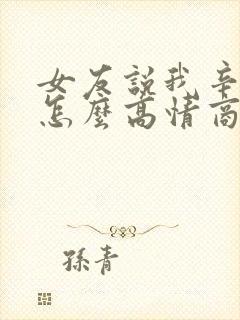 女友說我辛
怎麼高情商
孫青